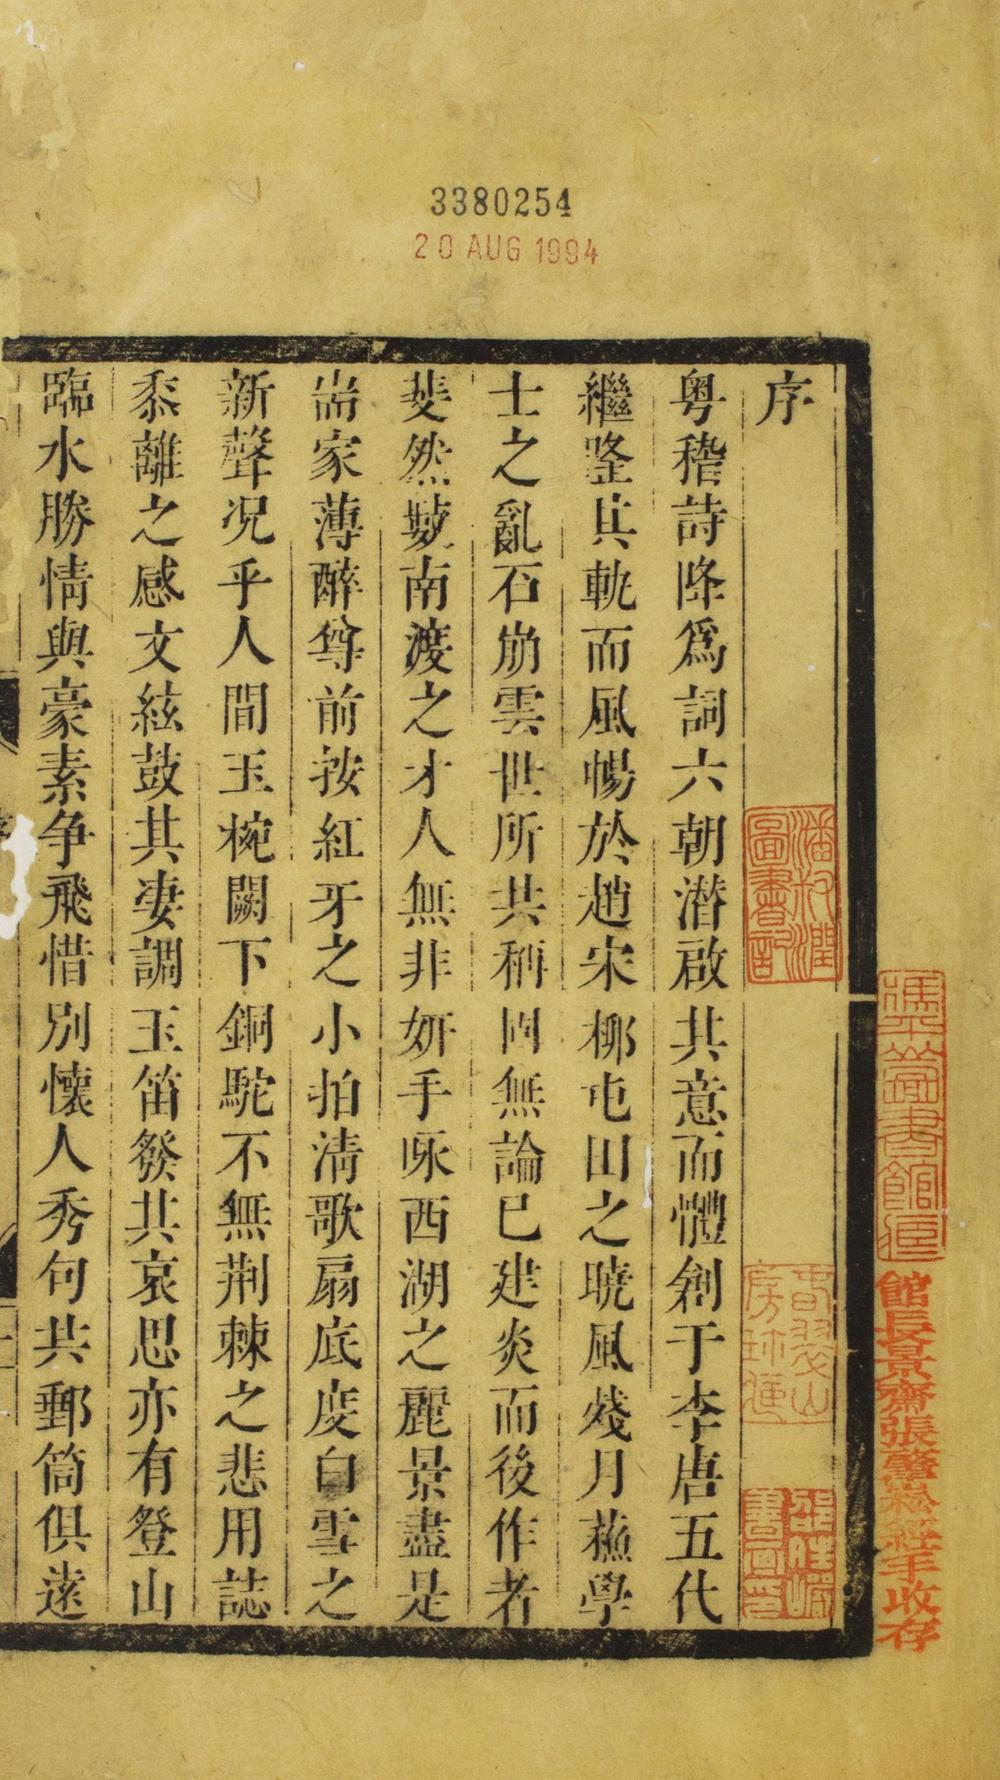 3380254
20 AUG 1994
序
粤稽詩降爲詞六朝潛啟其意而體創于李唐五代
繼隆其軌而風暢於趙宋栁屯田之曉風殘月蘇學
士之亂石崩雲世所共稱固無論已建炎而後作者
斐然數南渡之才人無非妍手咏西湖之麗景盡是
耑家薄醉尊前按紅牙之小拍清歌扇底度白雪之
新聲况乎人間玉椀闕下銅駝不無荆棘之悲用誌
黍離之感文絃鼓其凄調玉笛發其哀思亦有登山
臨水勝情與豪素争飛惜別懷人秀句共郵筒俱遠
潘叔潤圖書記
館長景齋張 經手收存